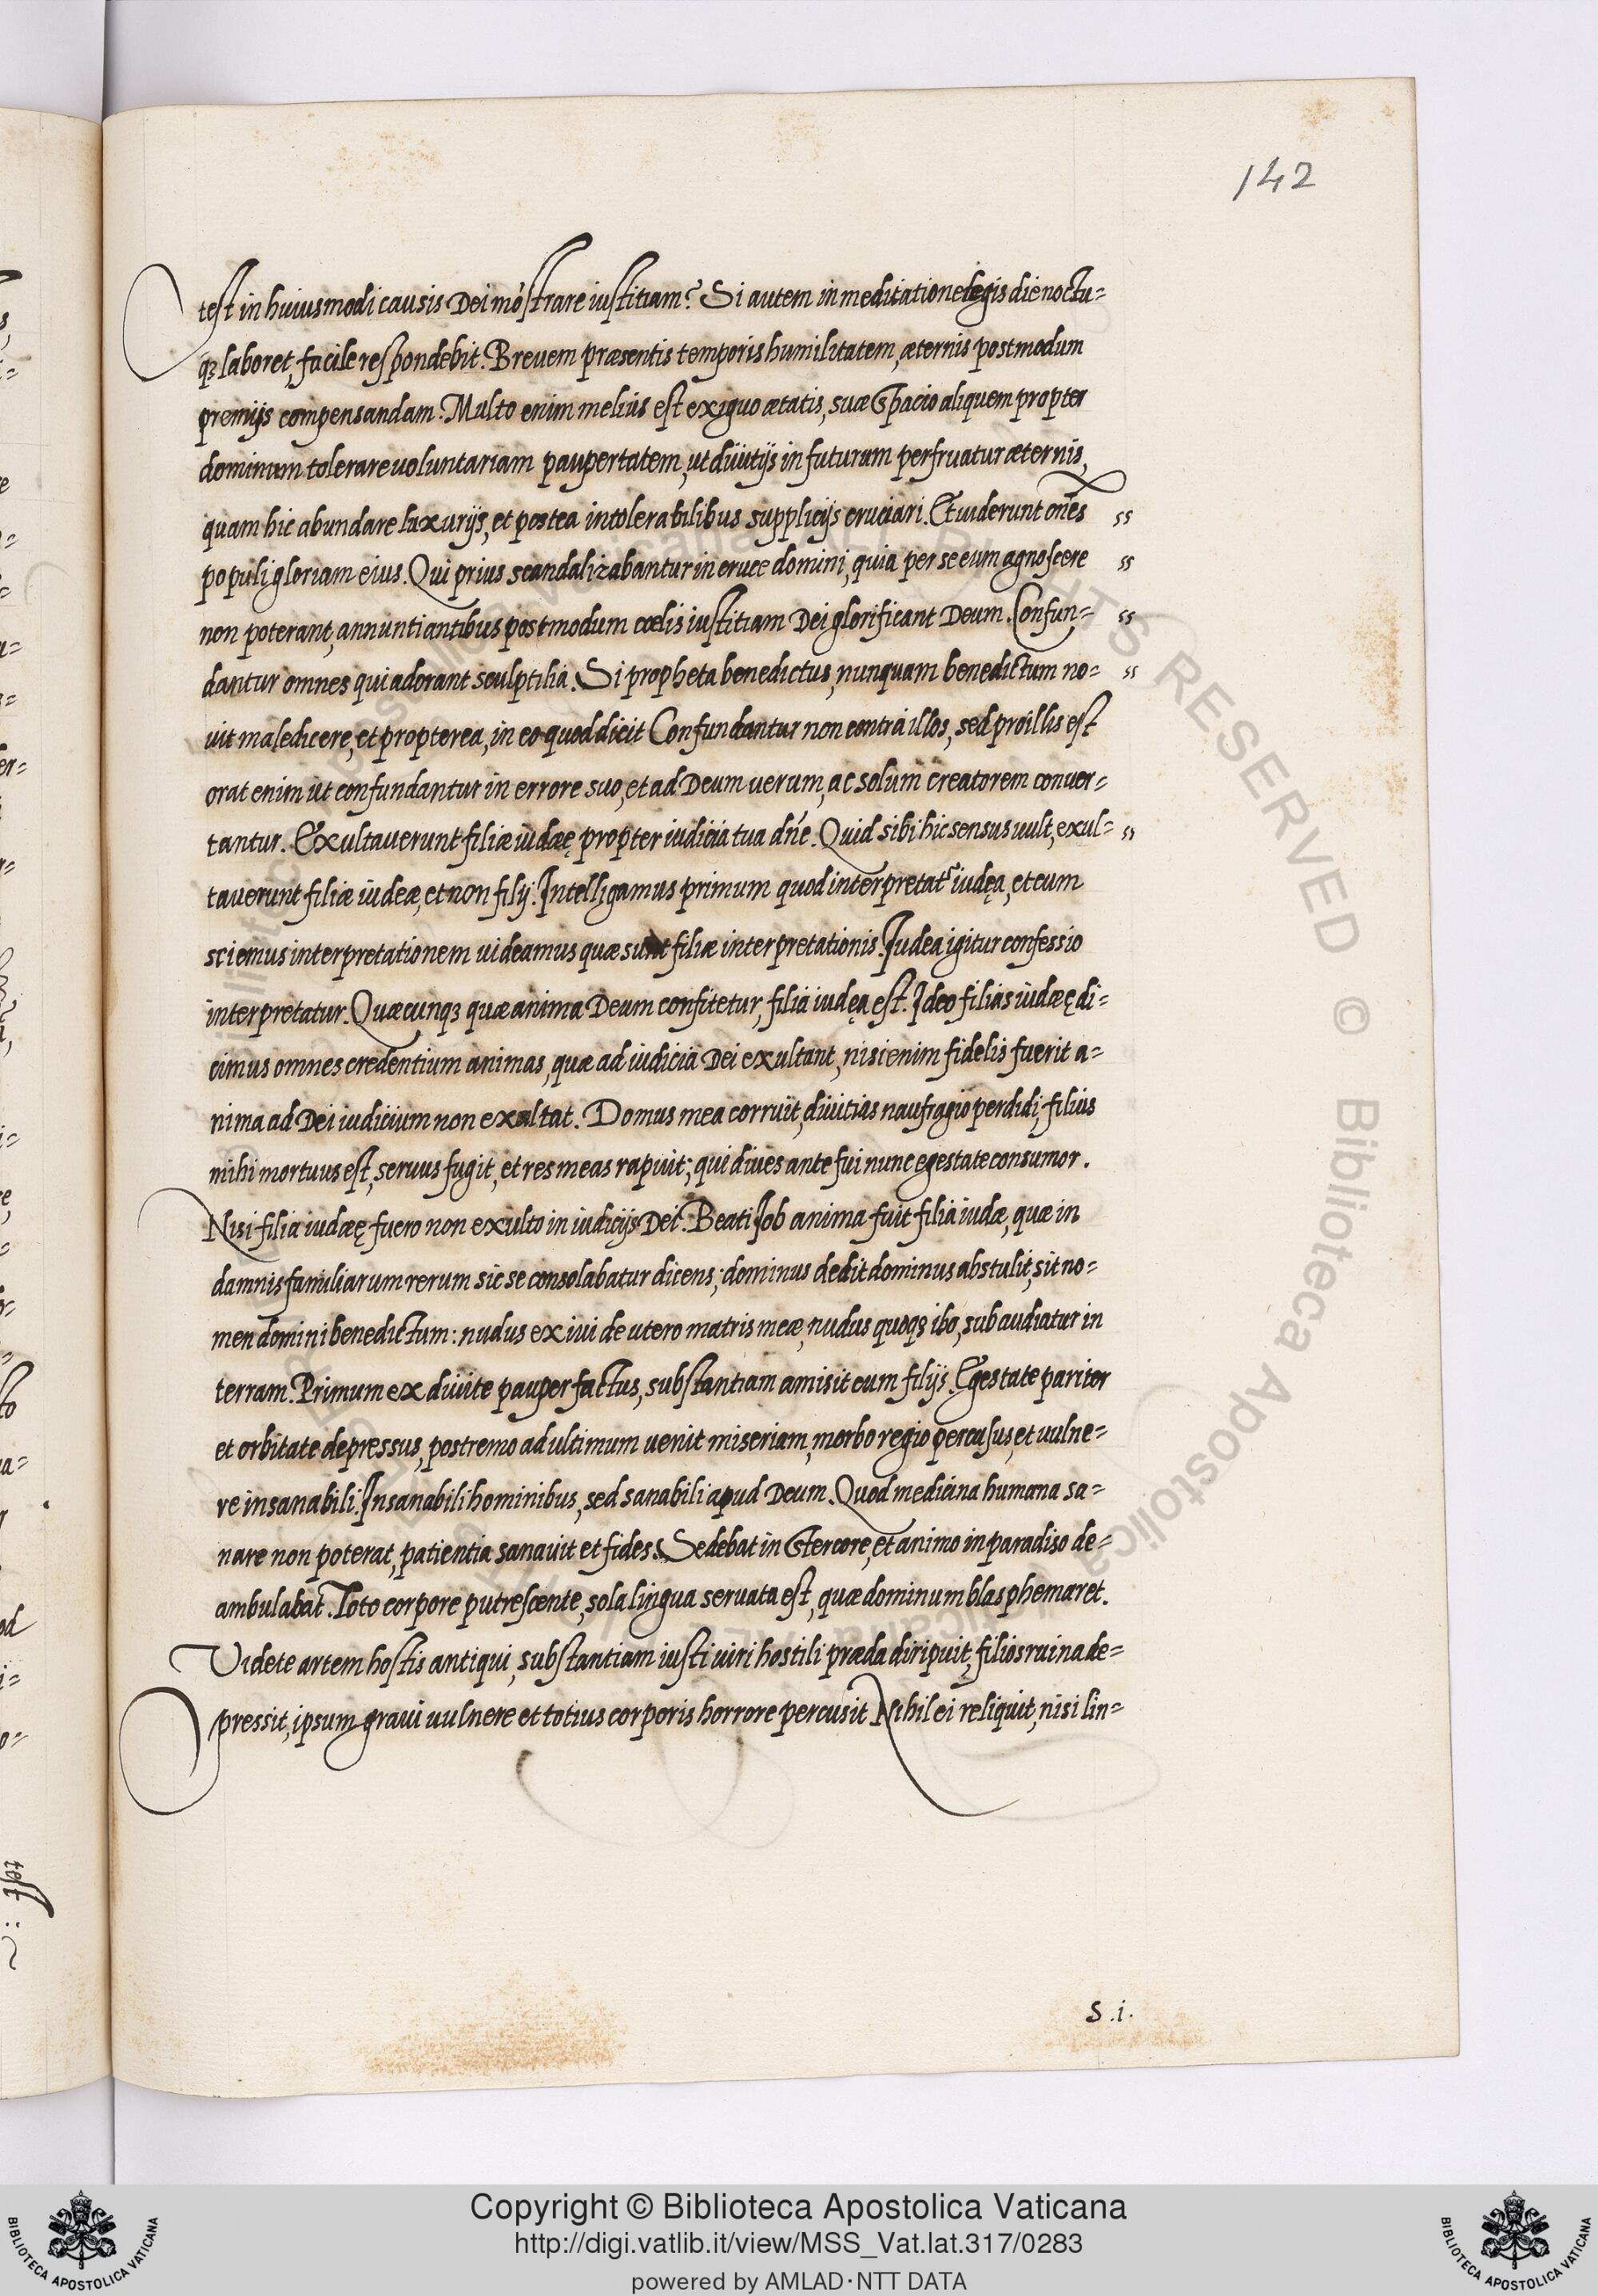 142
test in huiusmodi causis Dei mõstrare iustitiam? Si autem in meditatione legis die noctu=
qꝫ laboret, facile respondebit. Breuem præsentis temporis humilitatem, æternis postmodum
premijs compensandam. Multo enim melius est exiguo ætatis, suæ spacio aliquem propter
dominum tolerare uoluntariam paupertatem, ut diuitijs in futurum perfruatur æternis,
quam hic abundare luxurijs, et postea intolerabilibus supplicijs cruciari. Et uiderunt oñes ss
populi gloriam eius. Qui prius scandalizabantur in cruce domini, quia per se eum agnoscere ss
non poterant, annuntiantibus postmodum cœlis iustitiam Dei glorificant Deum. Confun= ss
dantur omnes qui adorant sculptilia. Si propheta benedictus, nunquam benedictum no= ss
uit maledicere, et propterea, in eo quod dicit Confundantur non contra illos, sed pro illis est
orat enim ut confundantur in errore suo, et ad Deum uerum, ac solum creatorem conuer=
tantur. Exultauerunt filiæ iudæę propter iudicia tua dñe. Quid sibi hic sensus uult, exul= ss
tauerunt filiæ iudeæ, et non filij. Intelligamus primum quod interpretat᷑ iudęa, et cum
sciemus interpretationem uideamus quæ sunt filiæ interpretationis. Iudea igitur confessio
interpretatur. Quæcunqꝫ quæ anima Deum confitetur, filia iudęa est. Ideo filias iudæę di=
cimus omnes credentium animas, quæ ad iudicia Dei exultant, nisi enim fidelis fuerit a=
nima ad Dei iudicium non exaltat. Domus mea corruit, diuitias naufragio perdidi, filius
mihi mortuus est, seruus fugit, et res meas rapuit; qui diues ante fui nunc egestate consumor.
Nisi filia iudæę fuero non exulto in iudicijs Dei. Beati Job anima fuit filia iudæ, quæ in
damnis familiarum rerum sic se consolabatur dicens; dominus dedit dominus abstulit, sit no=
men domini benedictum: nudus exiui de utero matris meæ, nudus quoqꝫ ibo, subaudiatur in
terram. Primum ex diuite pauper factus, substantiam amisit cum filijs. Egestate pariter
et orbitate depressus, postremo ad ultimum uenit miseriam, morbo regio percusus, et uulne=
re insanabili. Insanabili hominibus, sed sanabili apud Deum. Quod medicina humana sa=
nare non poterat, patientia sanauit et fides. Sedebat in stercore, et animo in paradiso de=
ambulabat. Toto corpore putrescente, sola lingua seruata est, quæ dominum blasphemaret.
Videte artem hostis antiqui, substantiam iusti uiri hostili præda diripuit, filios ruina de=
pressit, ipsum graui uulnere et totius corporis horrore percusit Nihil ei reliquit, nisi lin=
S.i.
Copyright © Biblioteca Apostolica Vaticana
http://digi.vatlib.it/view/MSS_Vat.lat.317/0283
powered by AMLAD·NTT DATA
BIBLIOTECA APOSTOLICA VATICANA
BIBLIOTECA APOSTOLICA VATICANA